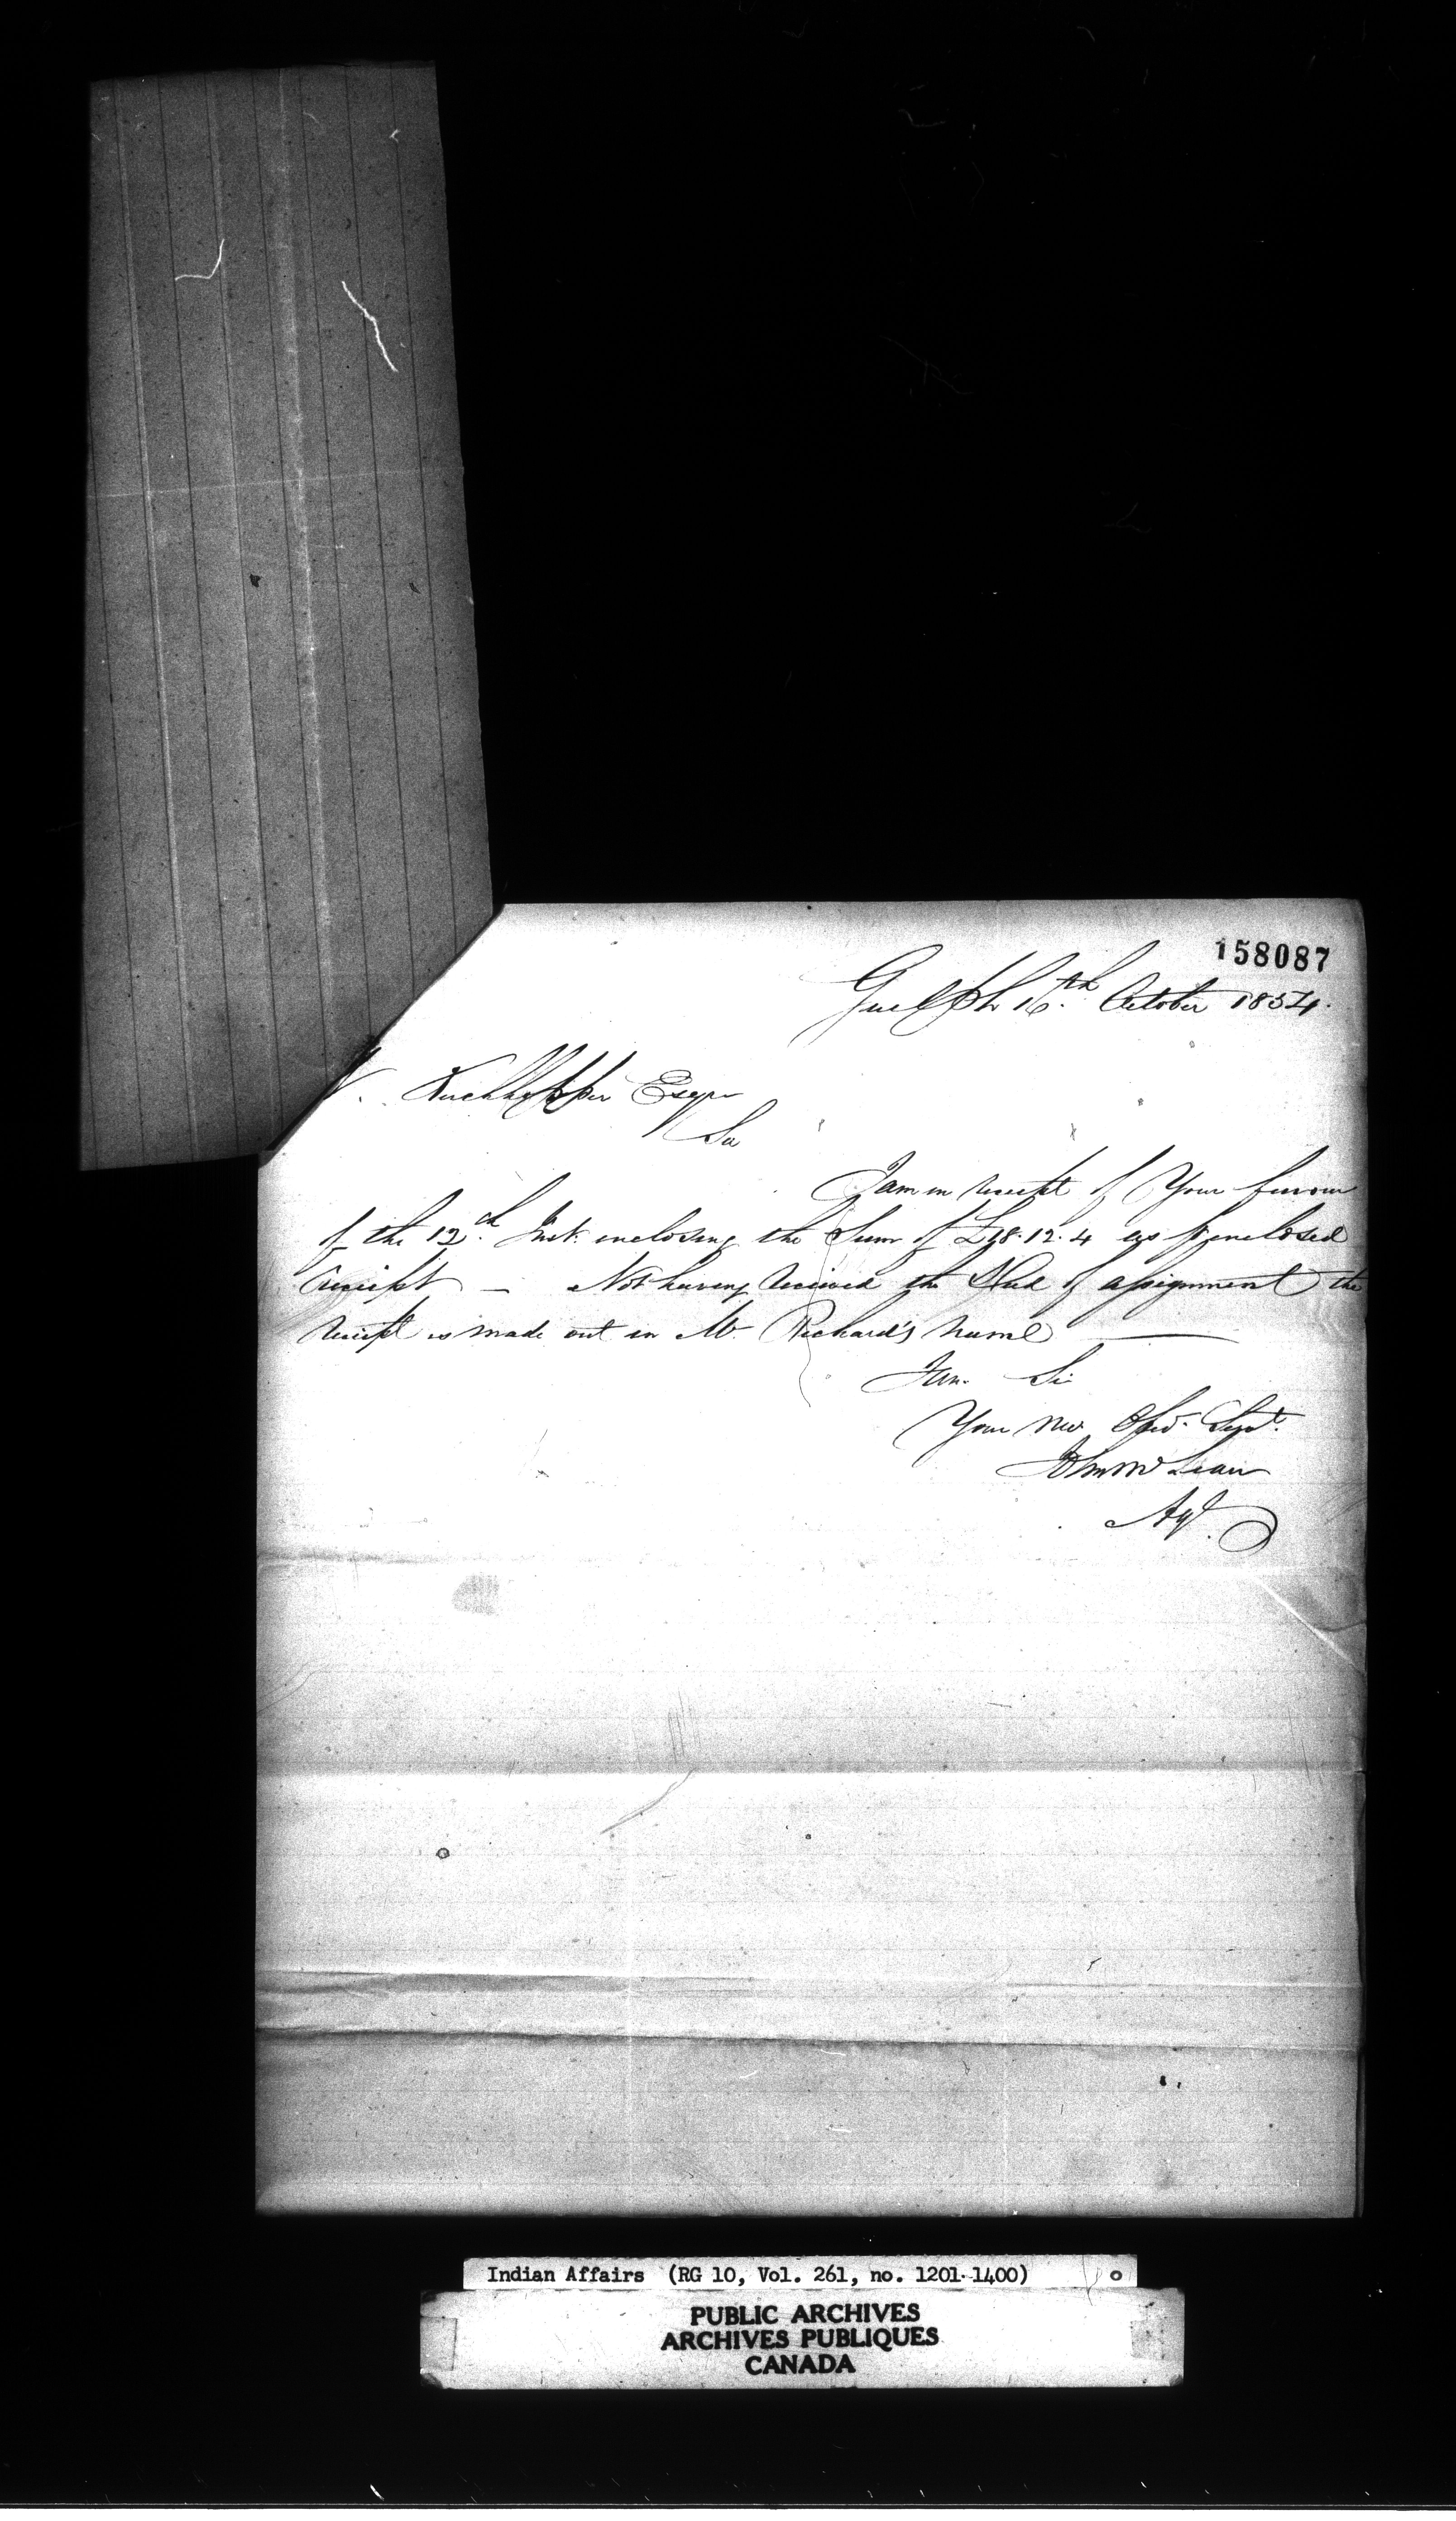 158087
Guelph 16th October 1854.
Kirchhoffer Esqr
Sir
I am in receipt of Your favour
of the 12th Inst. enclosing the Sum of £18.12.4 as p enclosed
receipt – Not having received the Deed of assignment the
receipt is made out in Mr. Richard's name
I am Sir
Your mo Obed. Servt.
John McLean
Agt.
Indian Affairs (RG 10, Vol. 261, no. 1201-1400)
PUBLIC ARCHIVES
ARCHIVES PUBLIQUES
CANADA